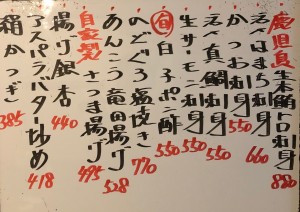 鹿児島 生本鮪トロ刺身 880
天然はまち刺身 660
かつお刺身 550
天然真鯛刺身 550
生サーモン刺身 550
旬 白子ポン酢 550
のどぐろ塩焼き 770
あんこう竜田揚げ 528
自家製 さつま揚げ 495
揚げ銀杏 440
アスパラバター炒め 418
絹かつぎ 385